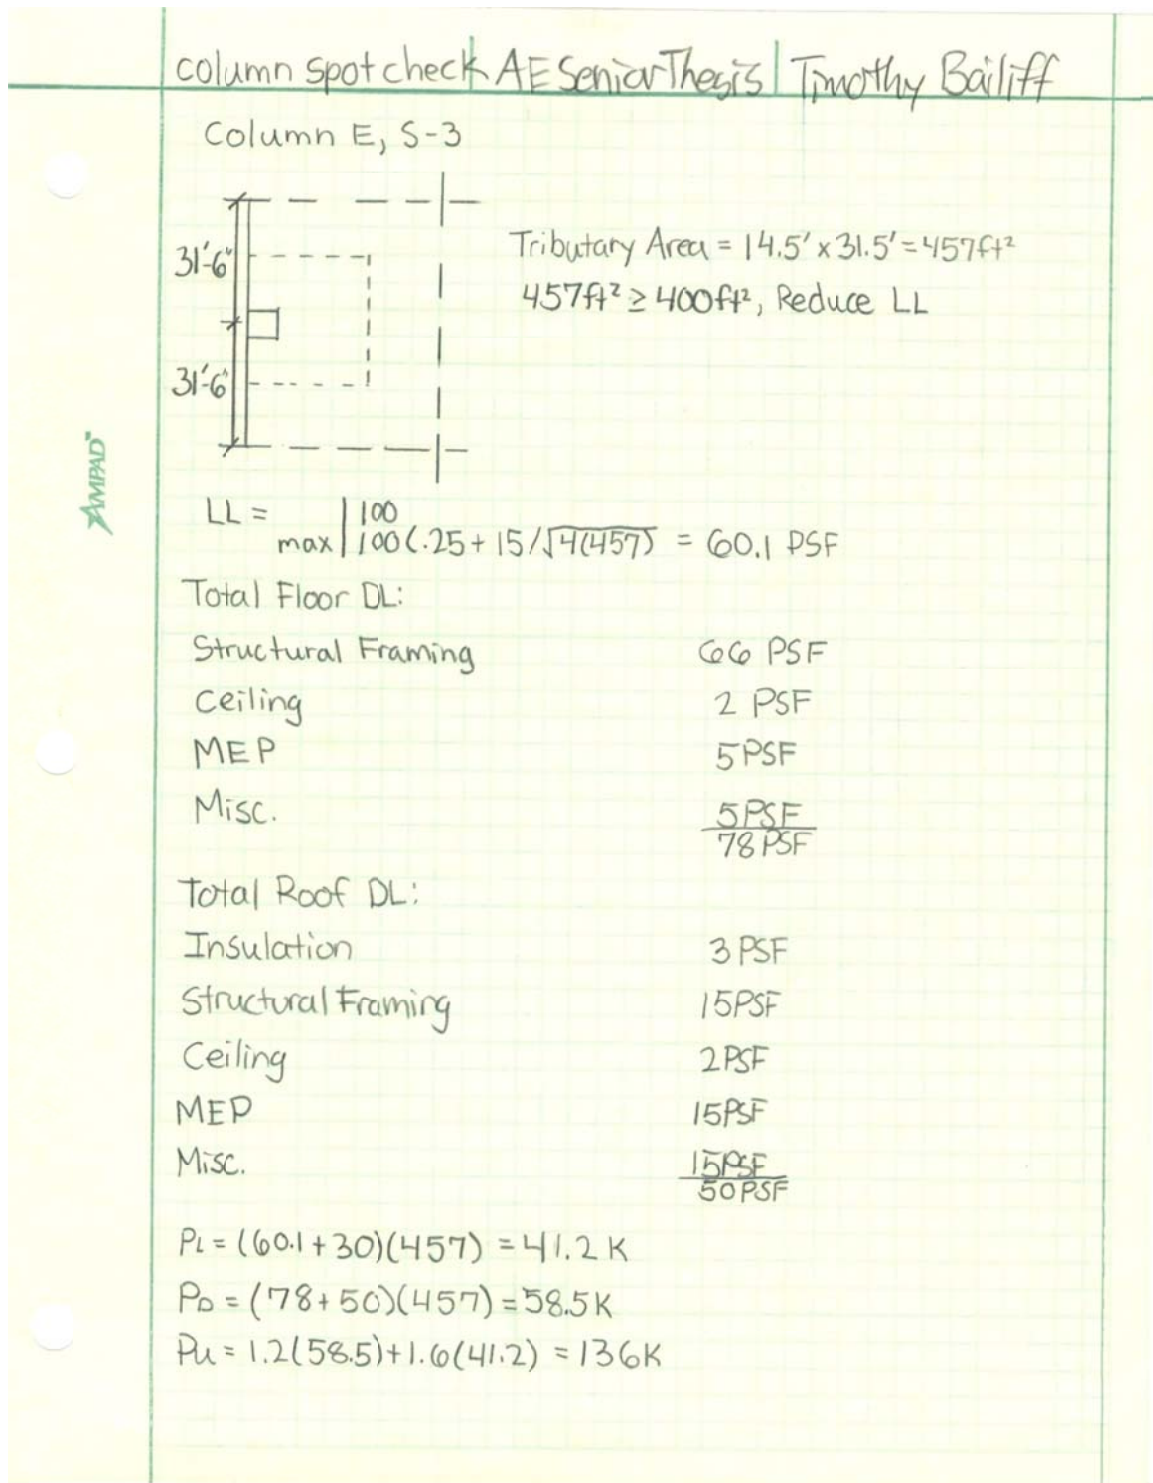 column spot check AE Senior Thesis Timothy Bailiff
Column E, S-3
31'-6"
31'-6"
Tributary Area = 14.5' x 31.5' = 457ft²
457ft² ≥ 400ft², Reduce LL
AMPAD™
LL = 100
max 100(.25 + 15/√4(457) = 60.1 PSF
Total Floor DL:
Structural Framing 66 PSF
Ceiling 2 PSF
MEP 5PSF
Misc. 5PSF
78 PSF
Total Roof DL:
Insulation 3 PSF
Structural Framing 15PSF
Ceiling 2PSF
MEP 15PSF
Misc. 15PSF
50PSF
PL = (60.1 + 30)(457) = 41.2 K
PD = (78 + 50)(457) = 58.5K
Pu = 1.2(58.5) + 1.6(41.2) = 136K